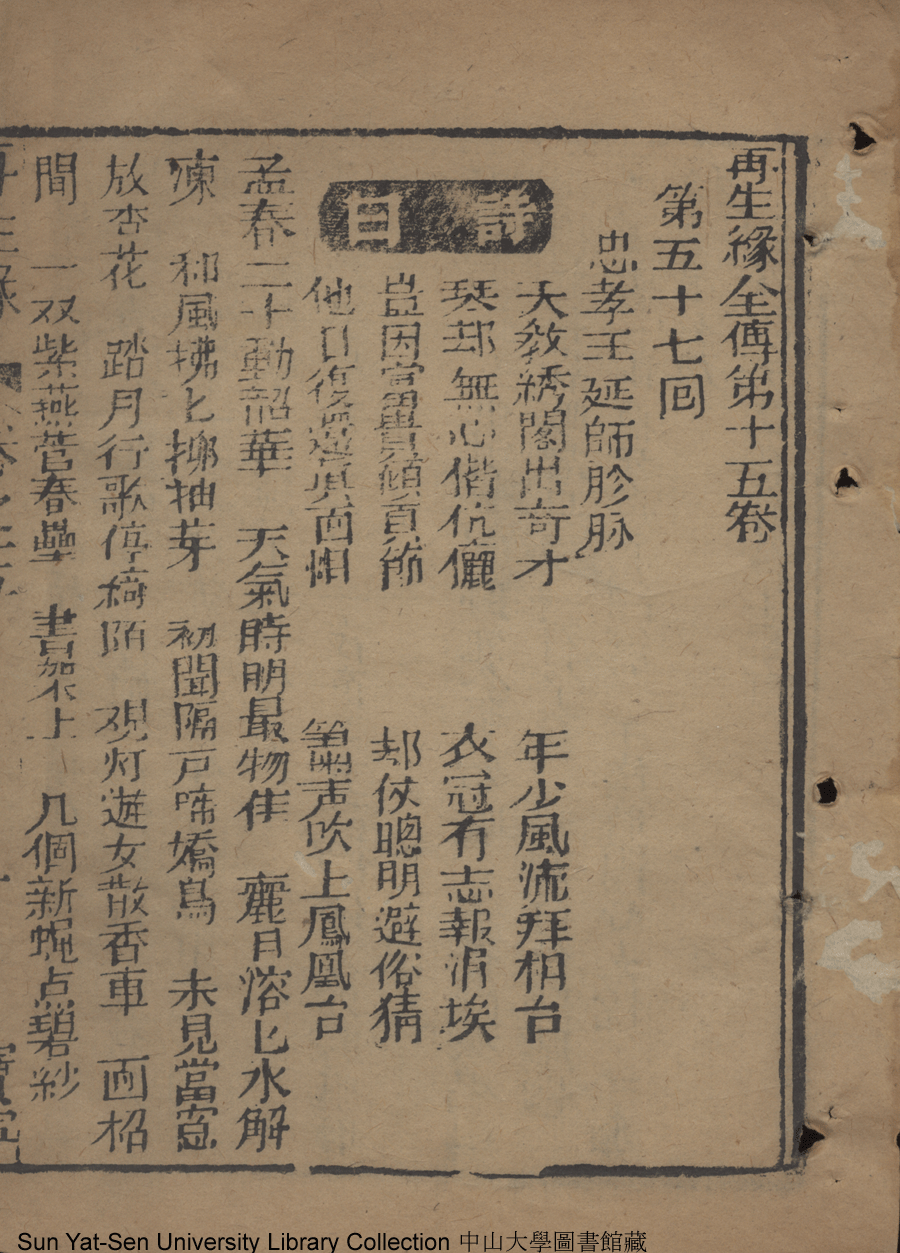 再生緣全傳第十五卷
第五十七回
忠孝王延師胗脉
詩曰
天教綉閣出奇才 年少風流拜相台
琴却無心偕伉儷 衣冠有志報涓埃
豈因富貴傾貞節 却仗聰明避俗猜
他日復還真面怕 簫声吹上鳳凰台
孟春二十動韶華 天氣時明最物佳 麗日溶匕水解
凍 和風拂匕挪抽芽 初聞隔戸啼嬌鳥 未見當窓
放杏花 踏月行歌停綺陌 观灯遊女散香車 画梠
間 一双紫燕营春壘 書架上 几個新蜆点碧紗
再生緣
Sun Yat-Sen University Library Collection 中山大學圖書館藏